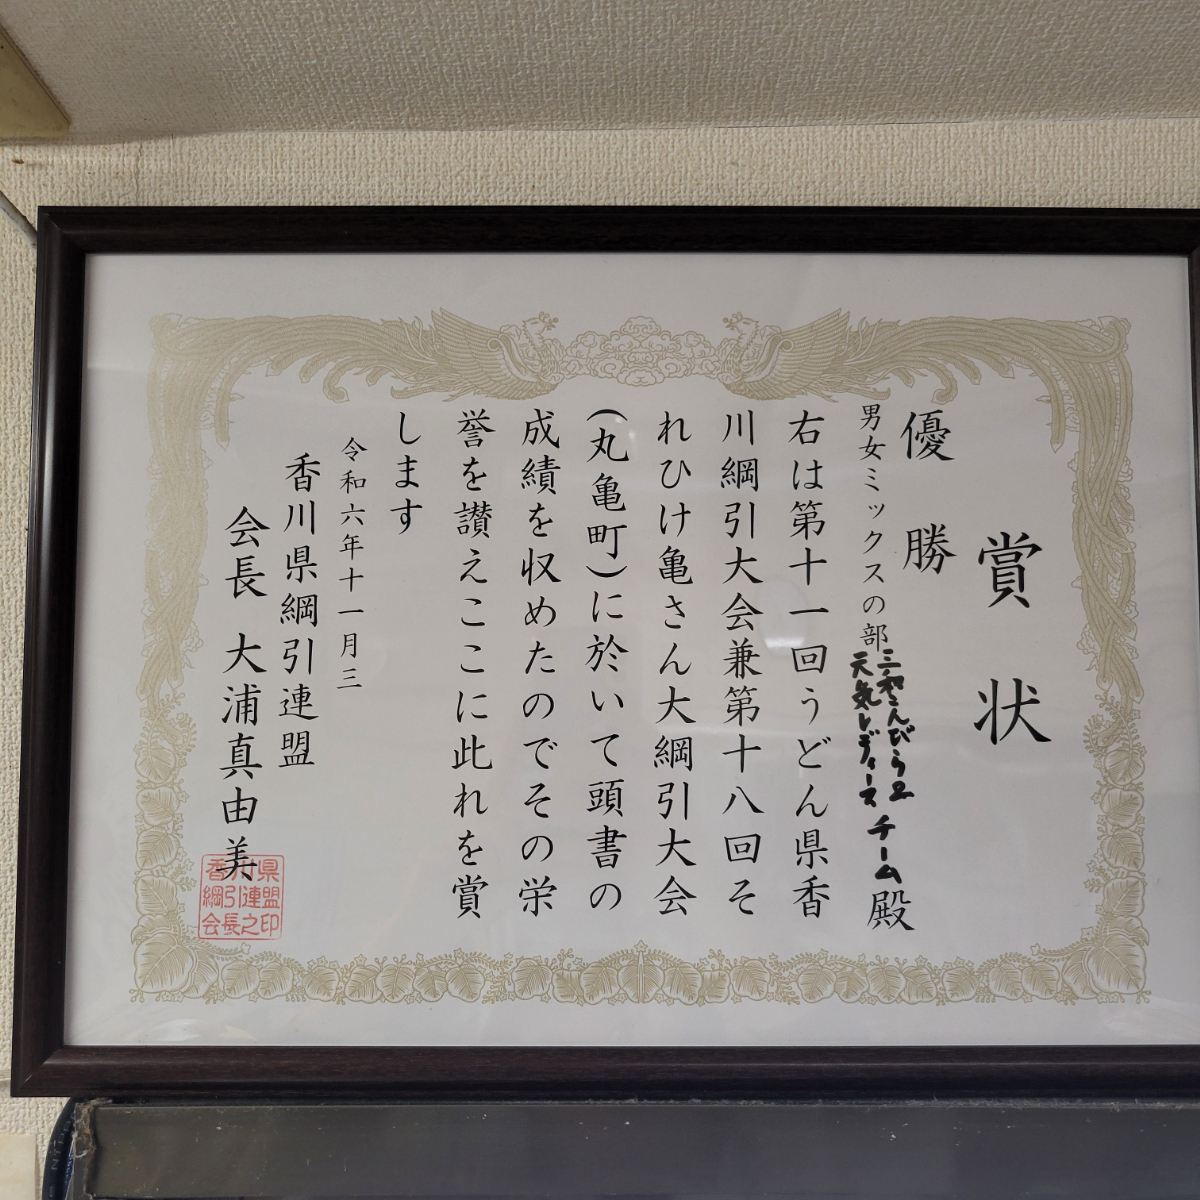 賞状
優勝
男女ミックスの部
三和こんぴらユ
天気レディース
チーム殿
右は第十一回うどん県香
川綱引大会兼第十八回そ
れひけ亀さん大綱引大会
(丸亀町)に於いて頭書の
成績を収めたのでその栄
誉を讃えここに此れを賞
します
令和六年十一月三
香川県綱引連盟
会長 大浦真由美
香川県
綱引連盟
会長之印